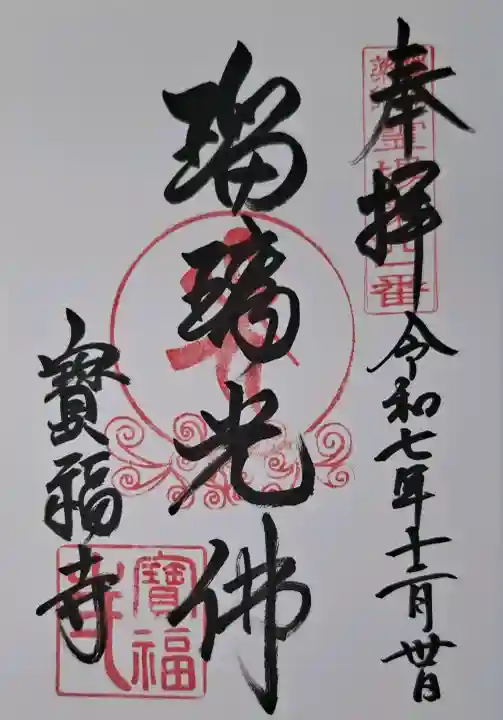 奉拝
令和七年十二月廿日
瑠璃光佛
寳福寺
霊場
一番
寳福寺